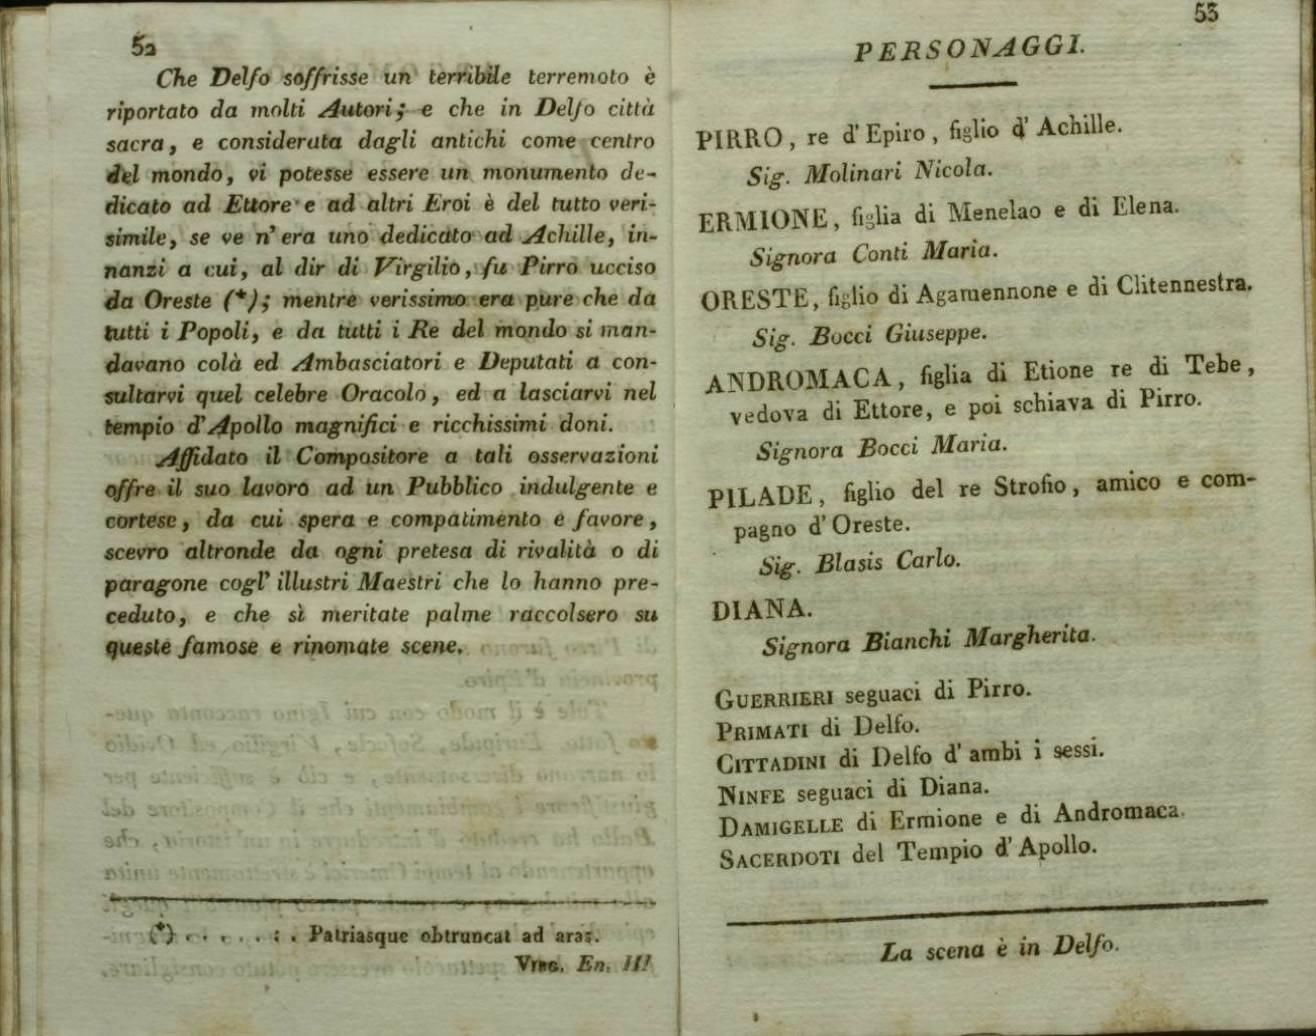 52
Che Delfo soffrisse un terribile terremoto è
riportato da molti Autori; e che in Delfo città
sacra, e considerata dagli antichi come centro
del mondo, vi potesse essere un monumento de-
dicato ad Ettore e ad altri Eroi è del tutto veri-
simile, se ve n'era uno dedicato ad Achille, in-
nanzi a cui, al dir di Virgilio, fu Pirro ucciso
da Oreste (*); mentre verissimo era pure che da
tutti i Popoli, e da tutti i Re del mondo si man-
davano colà ed Ambasciatori e Deputati a con-
sultarvi quel celebre Oracolo, ed a lasciarvi nel
tempio d'Apollo magnifici e ricchissimi doni.
Affidato il Compositore a tali osservazioni
offre il suo lavoro ad un Pubblico indulgente e
cortese, da cui spera e compatimento e favore,
scevro altronde da ogni pretesa di rivalità o di
paragone cogl' illustri Maestri che lo hanno pre-
ceduto, e che sì meritate palme raccolsero su
queste famose e rinomate scene.
(*) . . . . . : . Patriasque obtruncat ad aras.
VIRG. En. III
53
PERSONAGGI.
PIRRO, re d'Epiro, figlio d'Achille.
Sig. Molinari Nicola.
ERMIONE, figlia di Menelao e di Elena.
Signora Conti Maria.
ORESTE, figlio di Agamennone e di Clitennestra.
Sig. Bocci Giuseppe.
ANDROMACA, figlia di Etione re di Tebe,
vedova di Ettore, e poi schiava di Pirro.
Signora Bocci Maria.
PILADE, figlio del re Strofio, amico e com-
pagno d'Oreste.
Sig. Blasis Carlo.
DIANA.
Signora Bianchi Margherita.
GUERRIERI seguaci di Pirro.
PRIMATI di Delfo.
CITTADINI di Delfo d'ambi i sessi.
NINFE seguaci di Diana.
DAMIGELLE di Ermione e di Andromaca.
SACERDOTI del Tempio d'Apollo.
La scena è in Delfo.